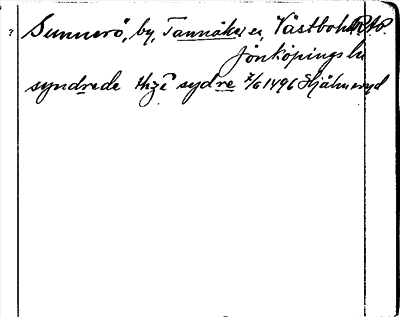 ? Sunnerö, by, Tannåker sn, Västbo hd
Jönköpings län
syndrede thzẽ sydre 7/6 1496 Hjälmseryd